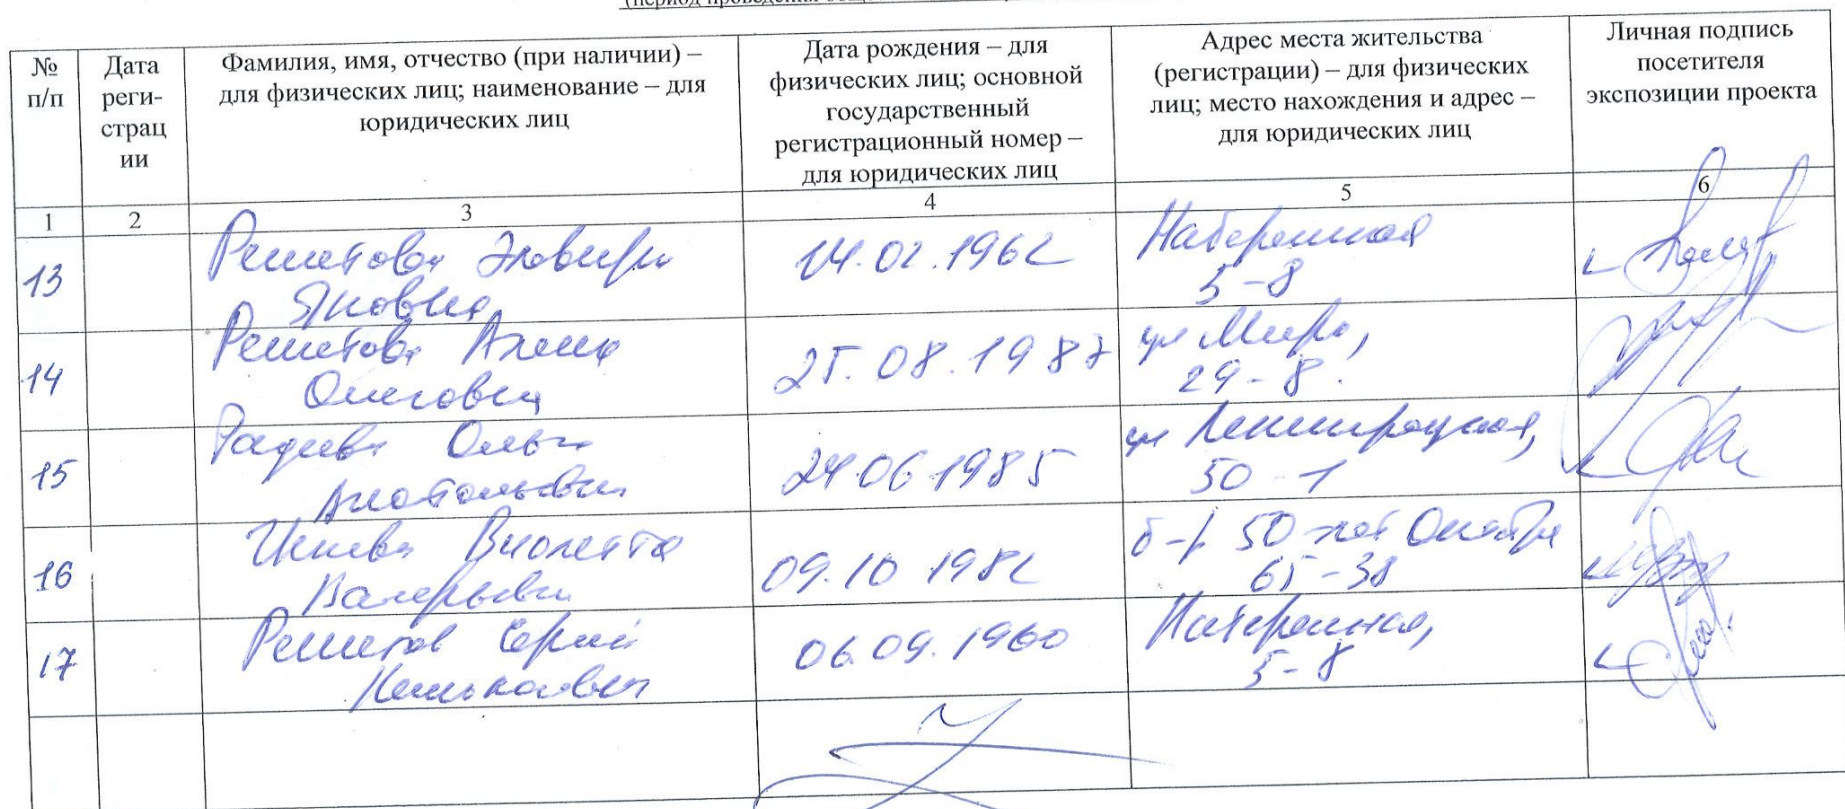 (период проведения
№ п/п
Дата реги-
страц
ии
Фамилия, имя, отчество (при наличии) –
для физических лиц; наименование – для
юридических лиц
Дата рождения – для
физических лиц; основной
государственный
регистрационный номер –
для юридических лиц
Адрес места жительства
(регистрации) – для физических
лиц; место нахождения и адрес –
для юридических лиц
Личная подпись
посетителя
экспозиции проекта
1 2 3 4 5 6
13 Решетова Эльвира 14.02.1962 Набережная
5-8
14 Решетова Алена 25.08.1987 ул Мира,
Олеговна 29-8.
15 Ольга 24.06.1985 ул Ленинградская,
Анатольевна 50-1
16 Виолетта 09.10 1982 б-р 50-лет Октября
Валерьевна 65-38
17 Решетов Сергей 06.09.1960 Набережная,
5-8